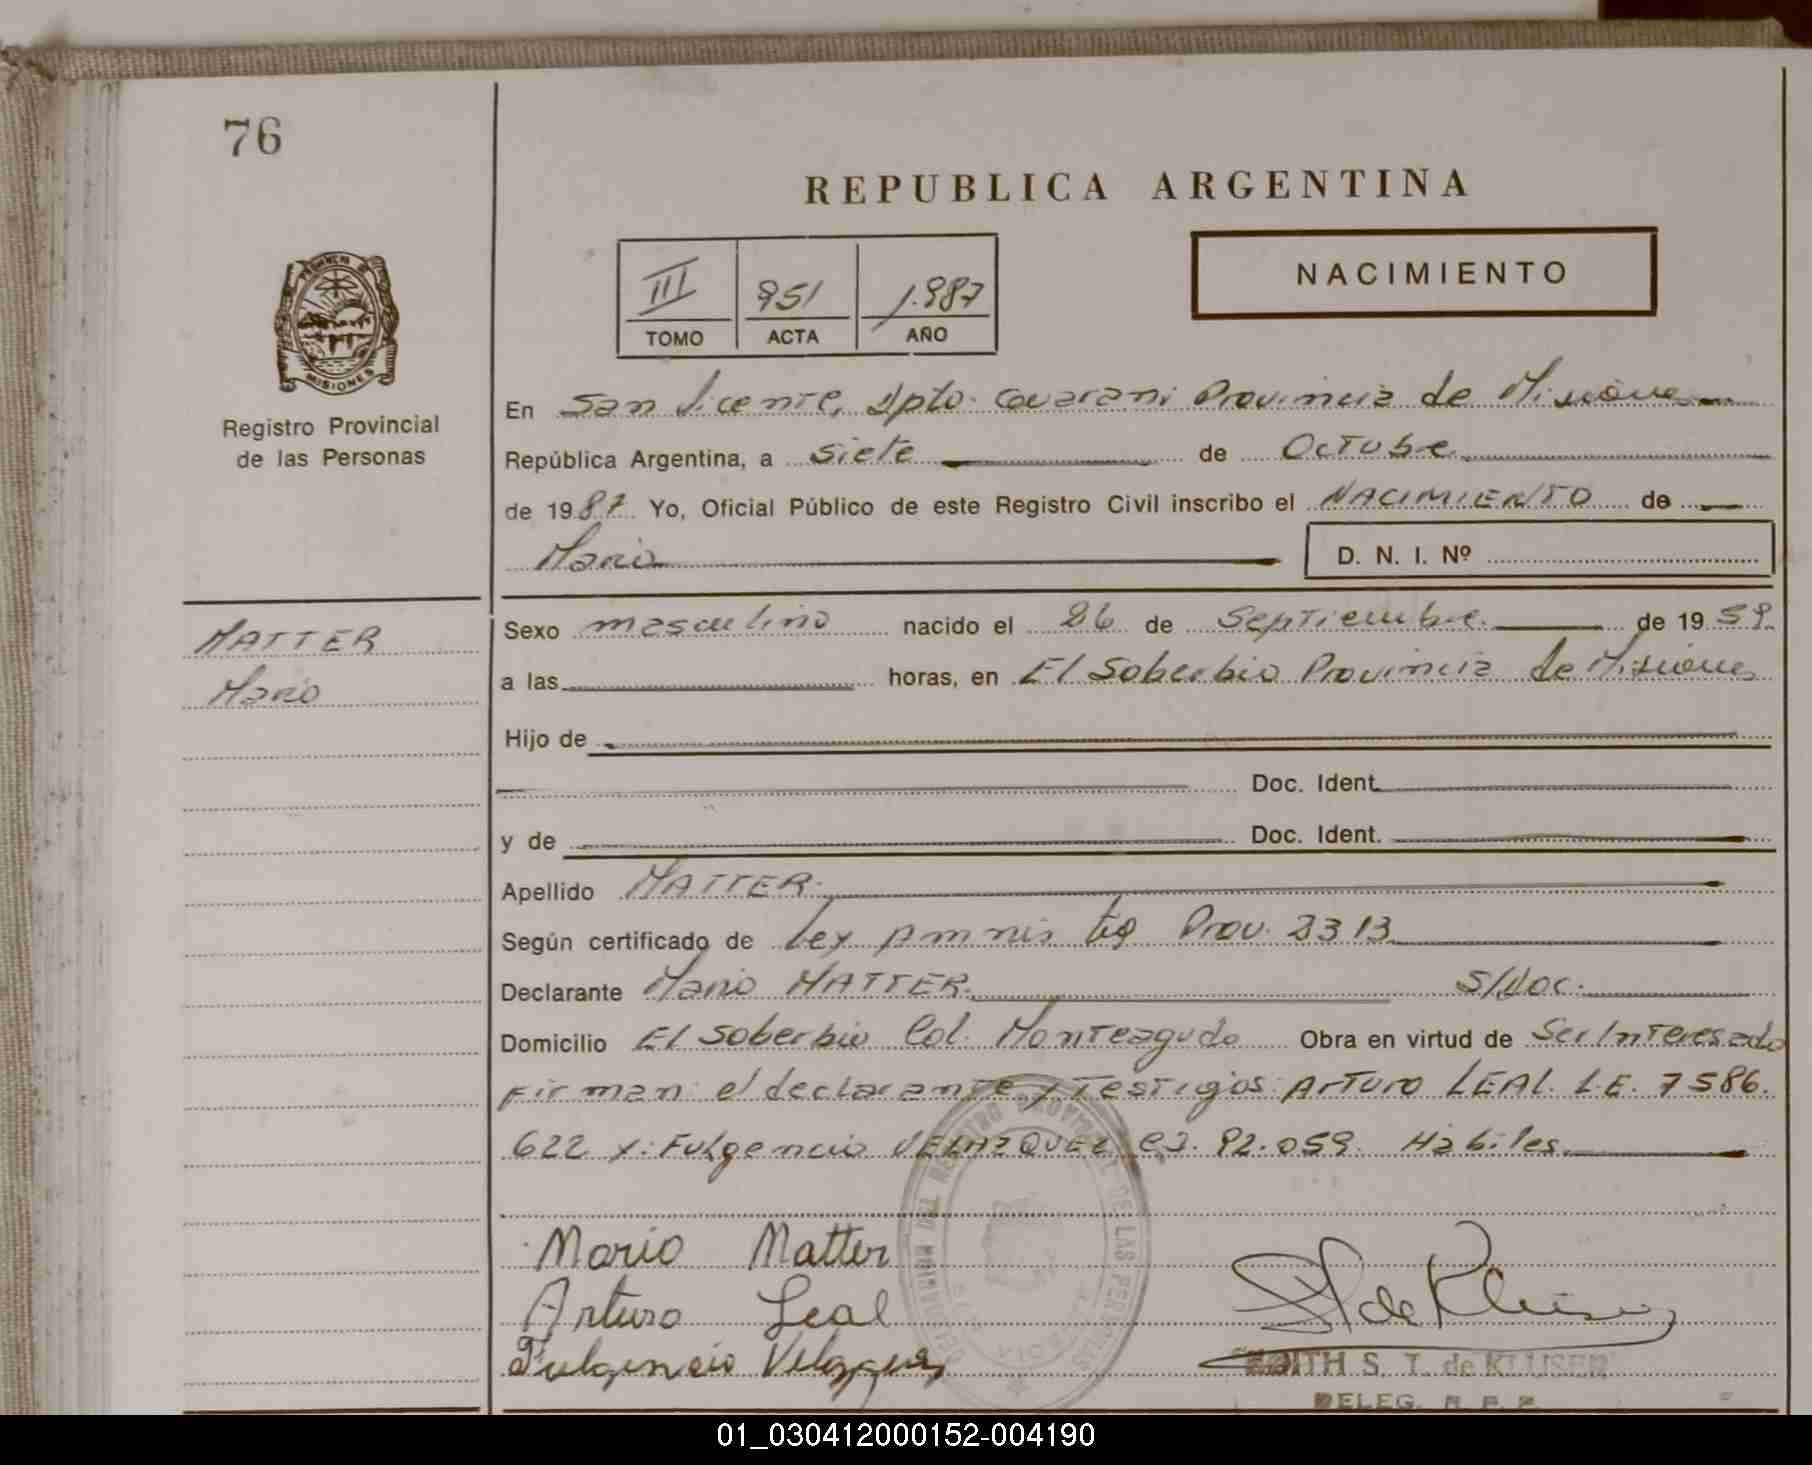 76
REPUBLICA ARGENTINA
NACIMIENTO
III 951 1.987
TOMO ACTA AÑO
PROVINCIA DE
MISIONES
Registro Provincial
de las Personas
En San Vicente, Dpto. Guarani Provincia de Misiones
República Argentina, a siete de Octubre
de 1987 Yo, Oficial Público de este Registro Civil inscribo el NACIMIENTO de
Mario D. N. I. Nº
MATTER
Mario
Sexo masculino nacido el 26 de Septiembre de 1959
a las horas, en El Soberbio Provincia de Misiones
Hijo de
Doc. Ident.
y de Doc. Ident.
Apellido MATTER.
Según certificado de Ley Amnistia Prov. 2313
Declarante Mario MATTER. S/Doc.
Domicilio El Soberbio Col. Monteagudo Obra en virtud de Ser Interesado
Firman: el declarante y Testigos: Arturo LEAL. L.E. 7586.
622 y: Fulgencio VELAZQUEZ CI. 92.059. Habiles
Mario Matter
Arturo Leal
Fulgencio Velazquez
de Kluser
EDITH S. T. de KLUSER
DELEG. R. P. P.
DELEGACION DEL REGISTRO PROVINCIAL DE LAS PERSONAS
01_030412000152-004190